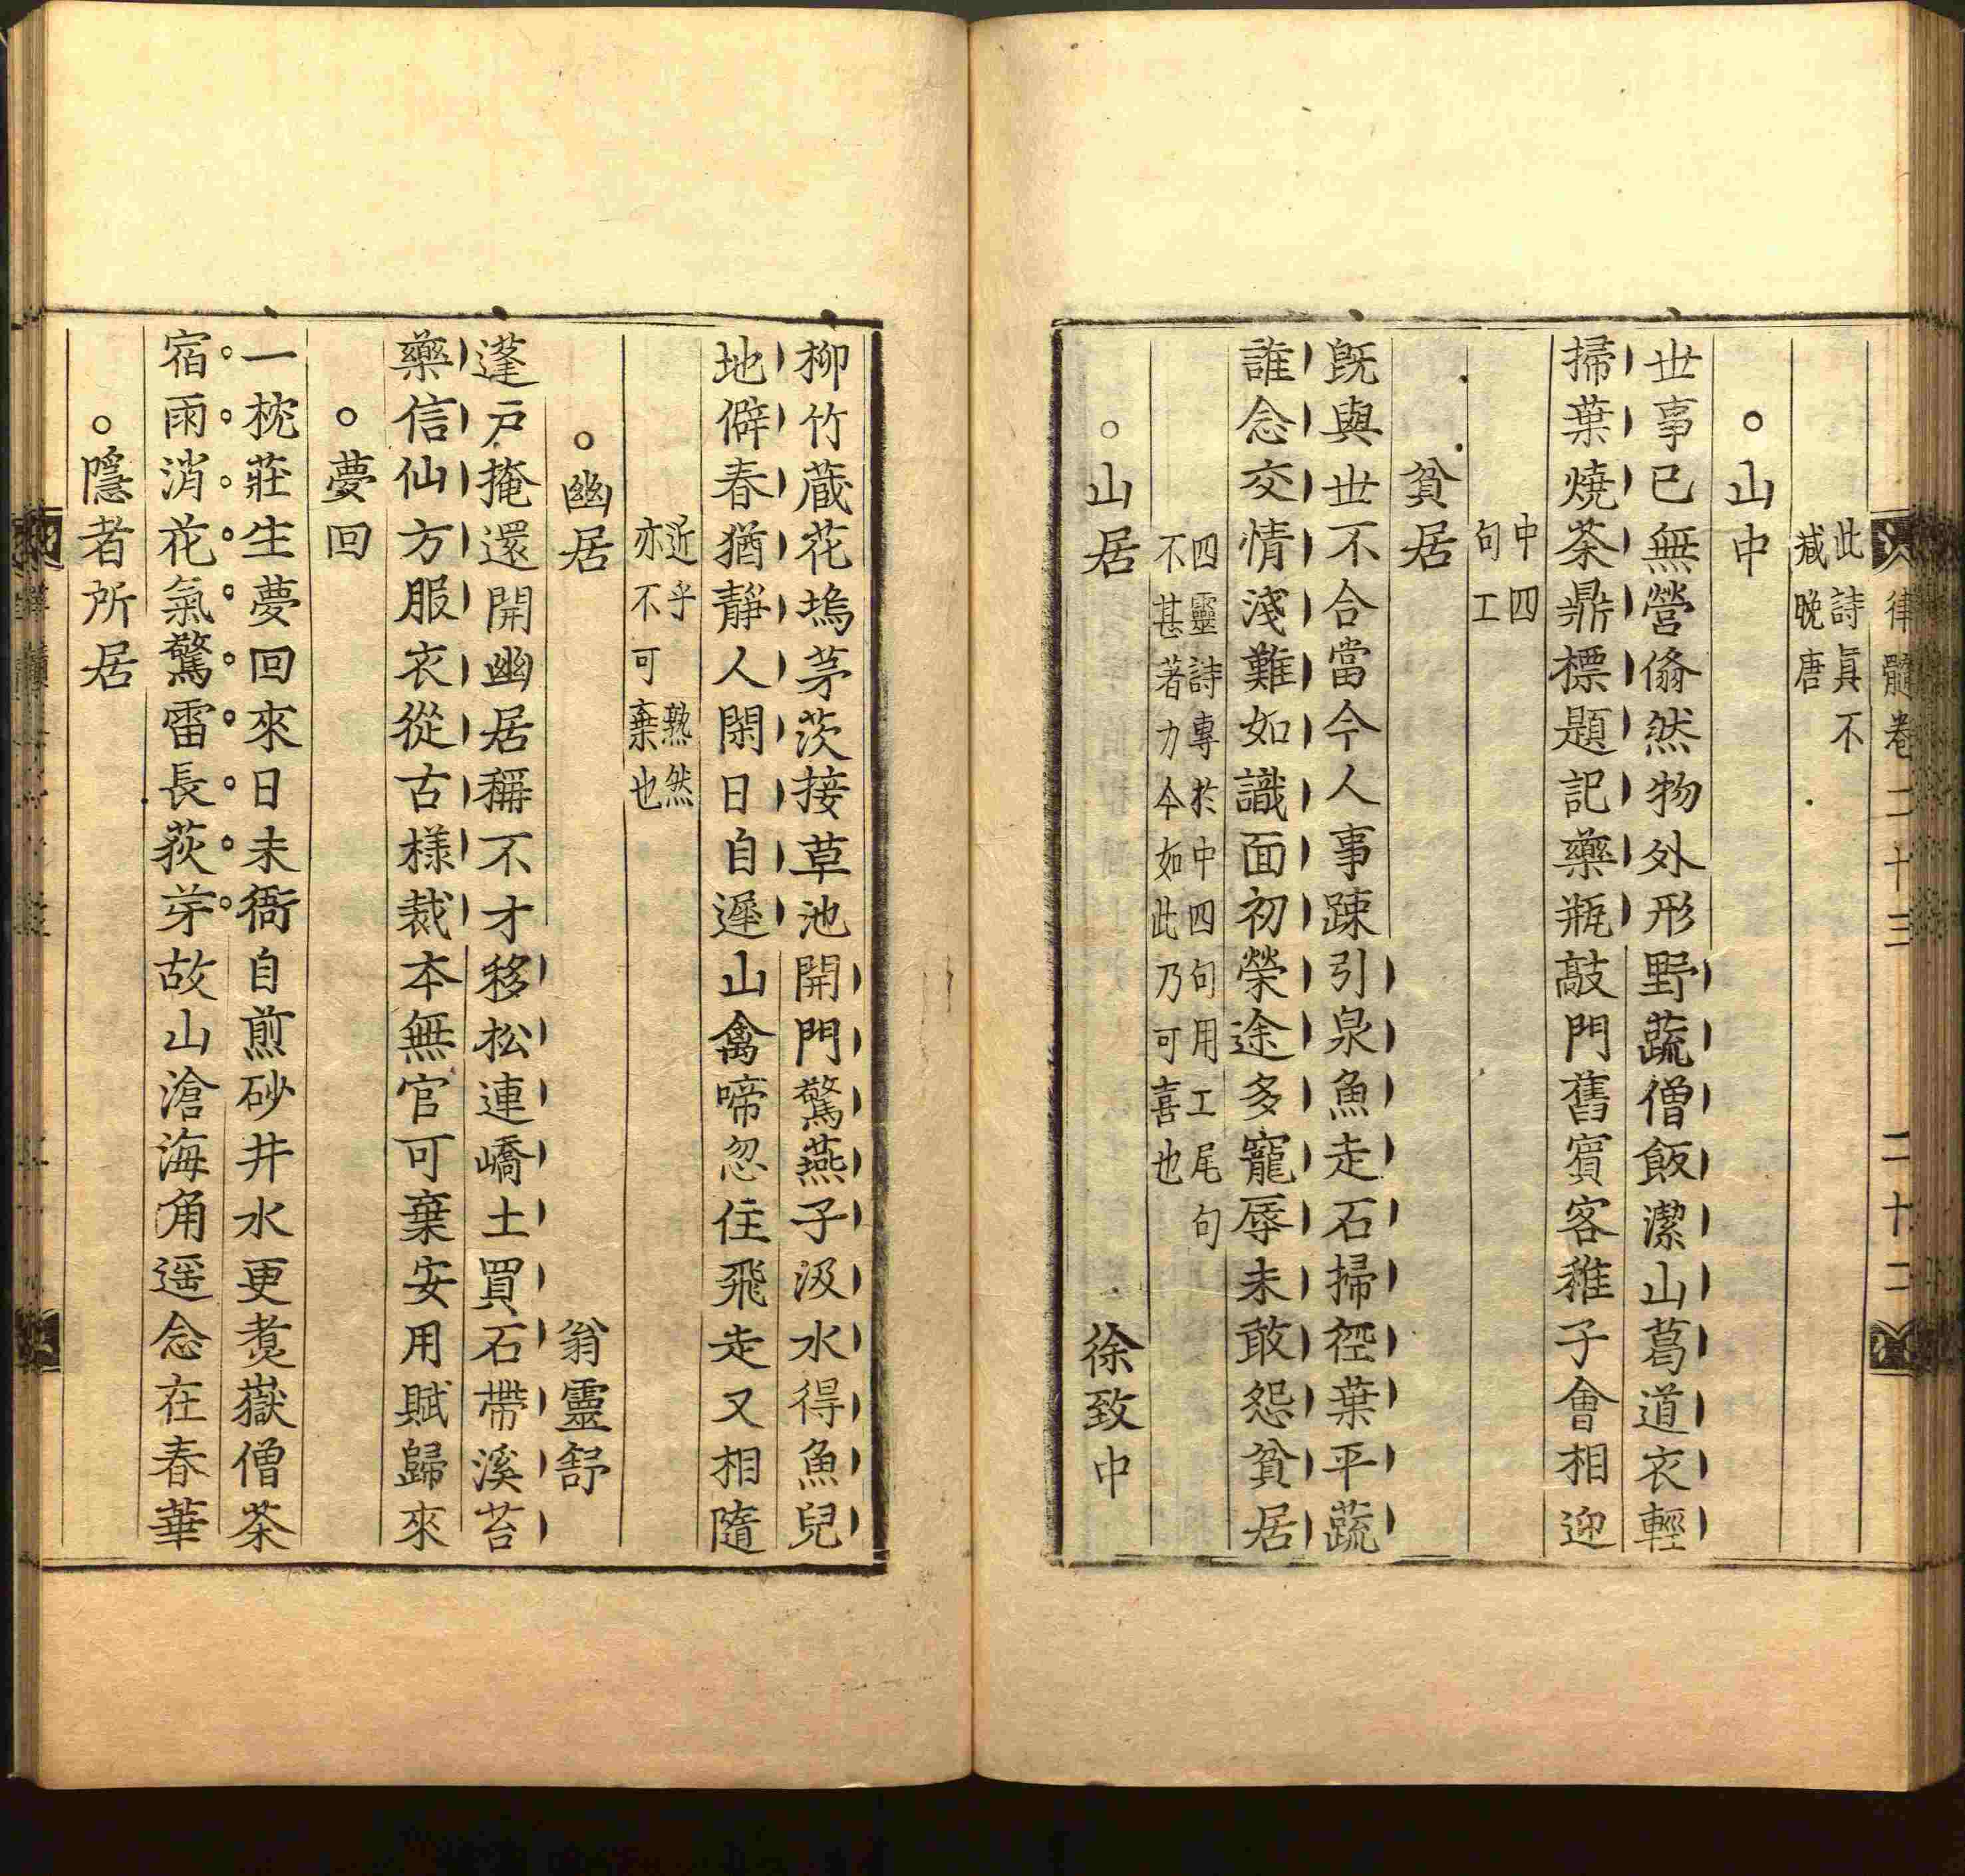 律髓卷二十三 二十二
此詩眞不
减晚唐
○山中
世事已無營翛然物外形野蔬僧飯潔山葛道衣輕
掃葉燒茶鼎標題記藥瓶敲門舊賓客稚子會相迎
中四
句工
貧居
旣與世不合當今人事踈引泉魚走石掃徑葉平蔬
誰念交情淺難如識面初榮途多寵辱未敢怨貧居
四靈詩專於中四句用工尾句
不甚著力今如此乃可喜也
○山居 徐致中
柳竹蔵花塢茅茨接草池開門驚燕子汲水得魚兒
地僻春猶靜人閑日自遲山禽啼忽住飛走又相隨
近乎熟然
亦不可棄也
○幽居 翁靈舒
蓬戸掩還開幽居稱不才移松連嶠土買石帶溪苔
藥信仙方服衣從古様裁本無官可棄安用賦歸來
○夢回
一枕莊生夢回來日未衙自煎砂井水更煑嶽僧茶
宿雨消花氣驚雷長荻芽故山滄海角遥念在春華
○隱者所居